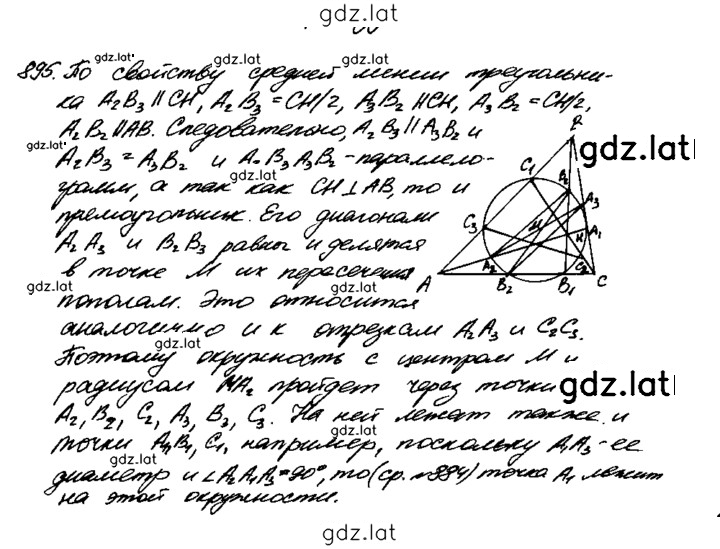 gdz.lat
895. По свойству средней линии треугольни-
ка A₂B₃ || CH, A₂B₃ = CH/2, A₃B₂ || CH, A₃B₂ = CH/2,
A₂B₂ || AB. Следовательно, A₂B₃ || A₃B₂ и
A₂B₃ = A₃B₂ и A₂B₃A₃B₂ - параллело-
грамм, а так как CH ⊥ AB, то и
прямоугольник. Его диагонали
A₂A₃ и B₂B₃ равны и делятся
в точке M их пересечения
пополам. Это относится
аналогично и к отрезкам A₂A₃ и C₂C₃.
Поэтому окружность с центром M и
радиусом MA₂ пройдет через точки
A₂, B₂, C₂, A₃, B₃, C₃. На ней лежат также и
точки A₁, B₁, C₁, например, поскольку A₂A₃ - ее
диаметр и ∠A₂A₁A₃ = 90°, то (ср. №884) точка A₁ лежит
на этой окружности.
B
C₁
A₃
C₃
M
A₁
H
A
A₂
C₂
B₂
B₁
C
gdz.lat
gdz.lat
gdz.lat
gdz.lat
gdz.lat
gdz.lat
gdz.lat
gdz.lat
gdz.lat
gdz.lat
gdz.lat
gdz.lat
gdz.lat
gdz.lat